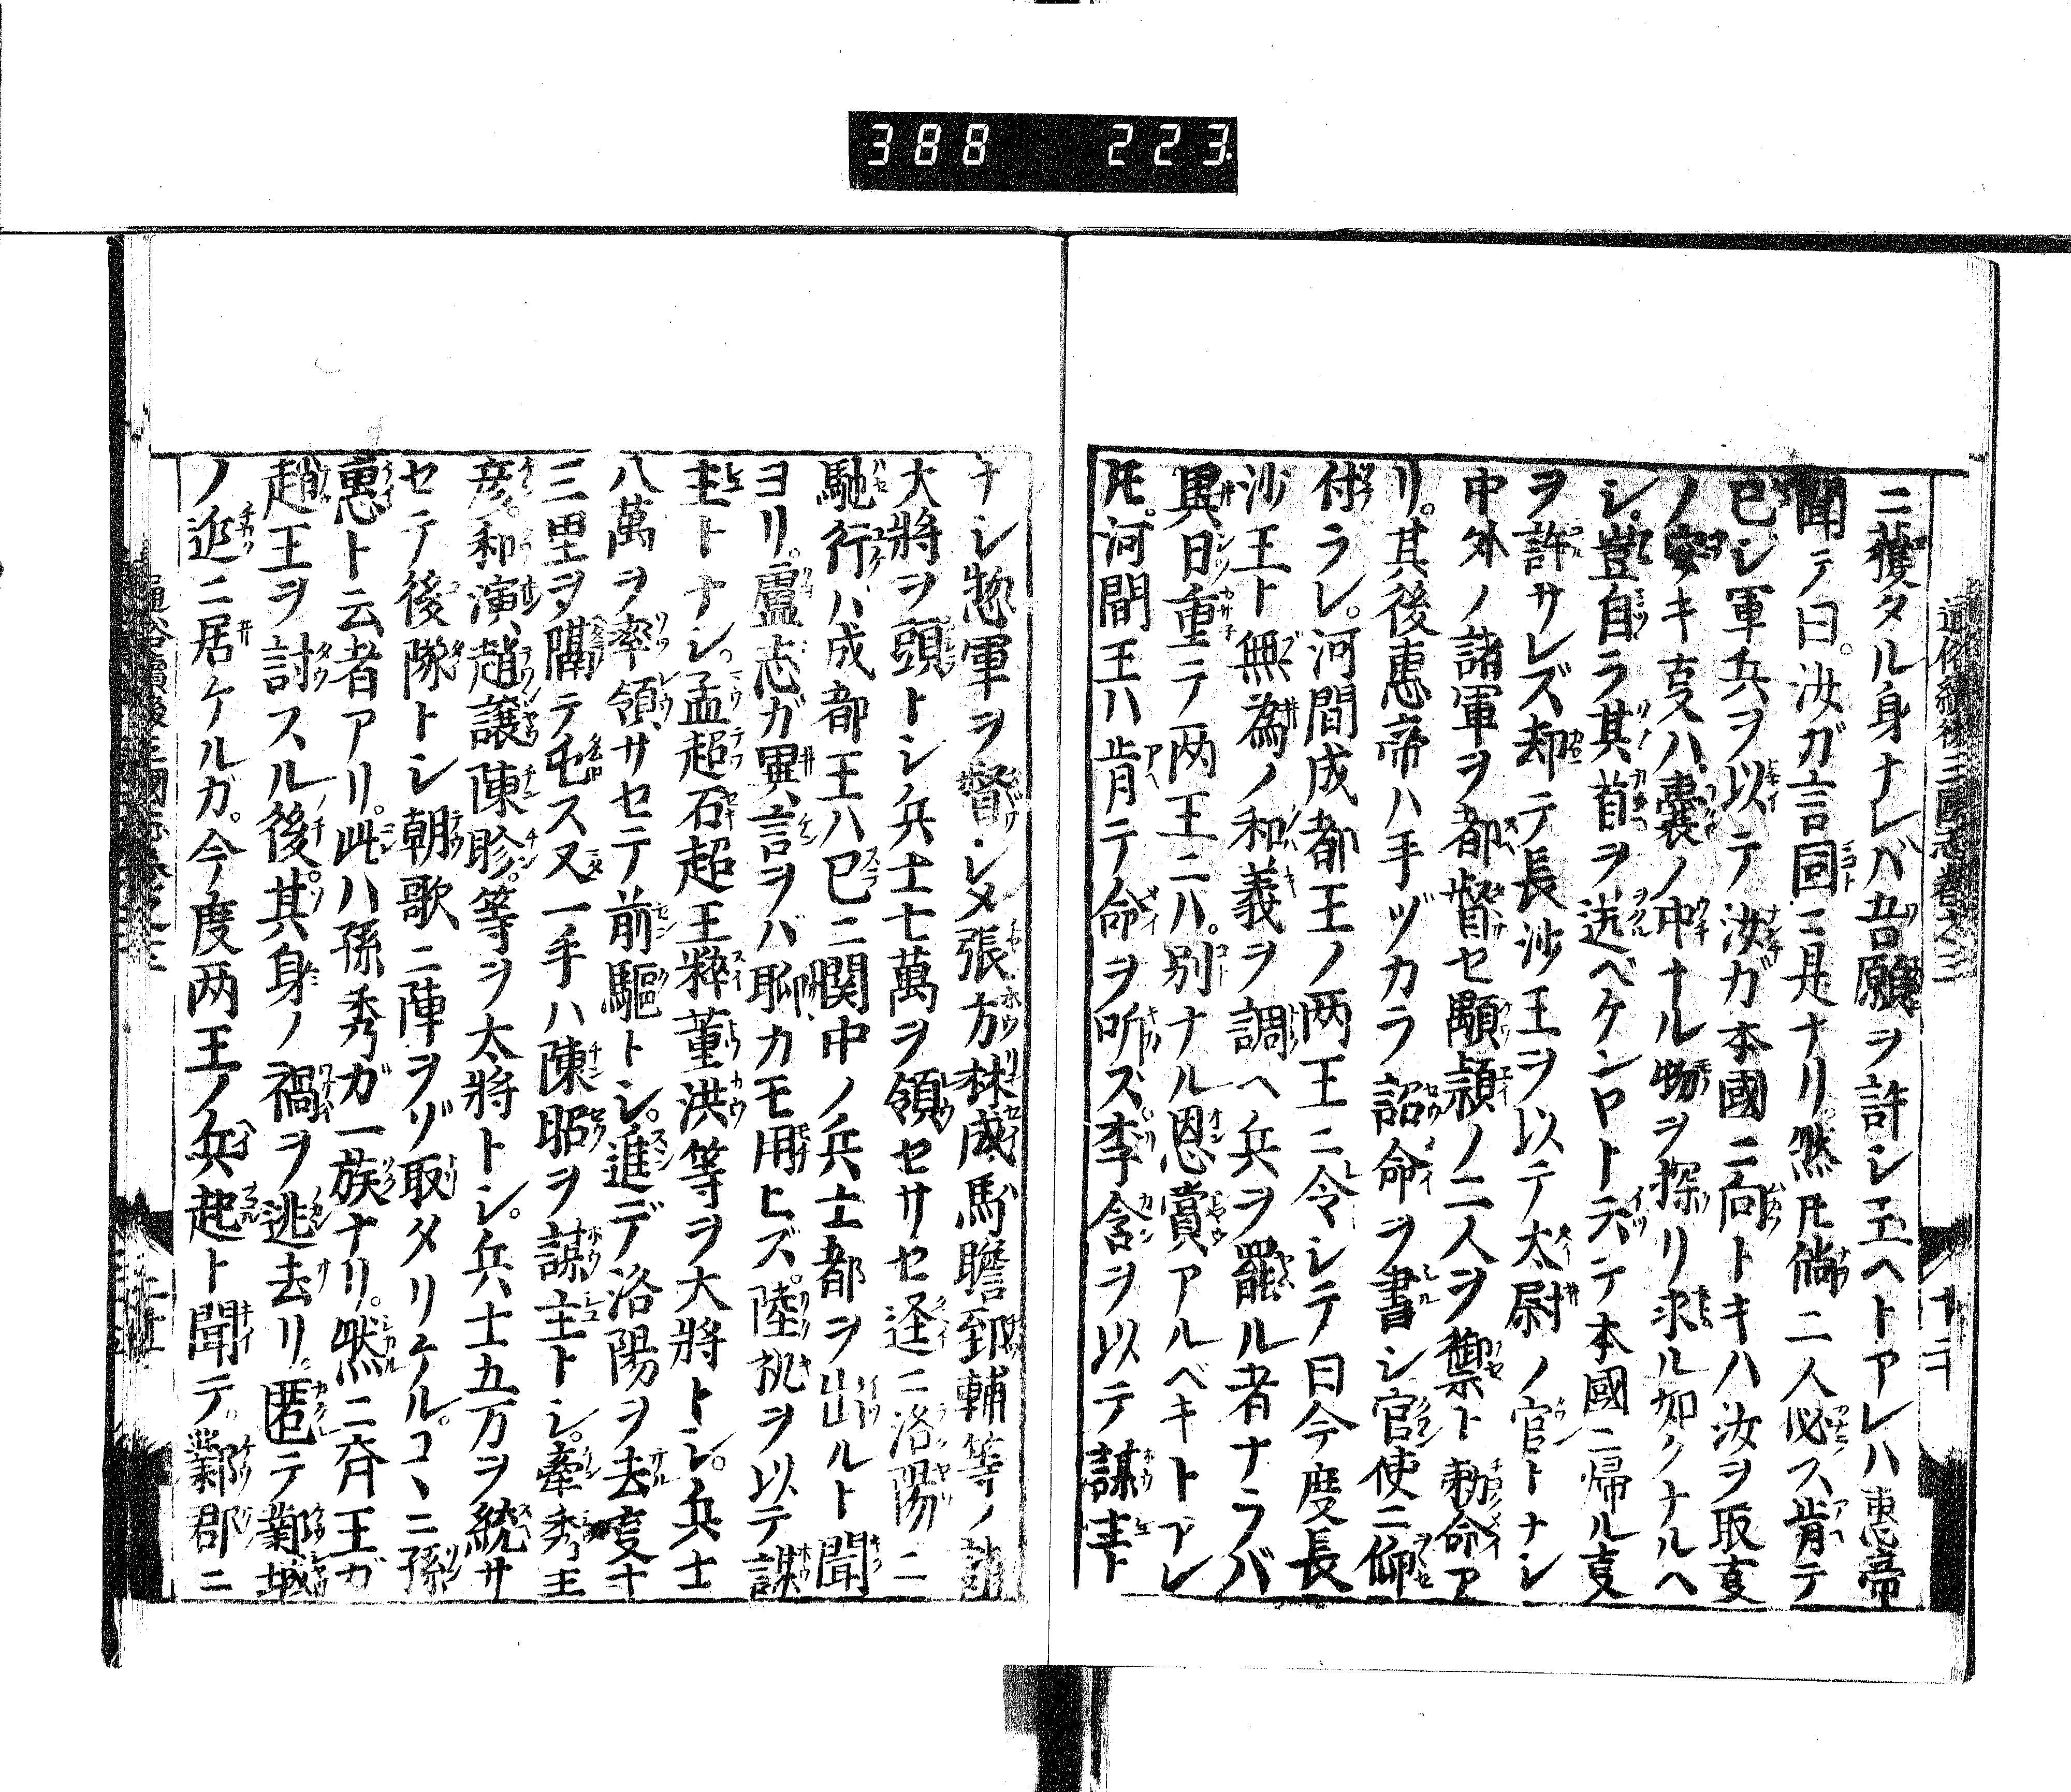 388 223
通俗續後三國志卷之三 十二
ニ獲タル身ナレバ吾願ヲ許シ玉ヘトアレハ惠帝
聞テ曰。汝ガ言固ニ是ナリ。然𪜈尚二人必ス肯テ
已シ軍兵ヲ以テ汝ガ本國ニ向トキハ汝ヲ取𫝆
ノ安キ𫝆ハ囊ノ中ナル物ヲ探リ求ル如クナルヘ
シ。豈自ラ其首ヲ送ベケンロト天テ本國ニ帰ル𫝆
ヲ許サレズ却テ長沙王ヲ以テ太尉ノ官トナシ
中外ノ諸軍ヲ都督セ顒頴ノ二人ヲ禦ト勅命ア
リ。其後惠帝ハ手ヅカラ詔命ヲ書シ官使ニ仰
付ラレ。河間成都王ノ两王ニ令シテ曰今度長
沙王ト無為ノ和義ヲ調ヘ兵ヲ罷ル者ナラバ
異日重テ两王ニハ。別ナル恩賞アルベキトアレ
𪜈。河間王ハ肯テ命ヲ听ズ。李含ヲ以テ謀主ト
ナシ惣軍ヲ督シメ張方林成馬瞻郅輔等ノ諸
大將ヲ頭トシ兵士七萬ヲ領セサセ逕ニ洛陽ニ
馳行バ成都王ハ已ニ関中ノ兵士都ヲ出ルト聞
ヨリ。盧志ガ異言ヲバ聊カモ用ヒズ。陸机ヲ以テ謀
主トナシ。孟超石超王粹董洪等ヲ大將トシ。兵士
八萬ヲ率領サセテ前驅トシ。進デ洛陽ヲ去𫝆十
三里ヲ隔テ屯ス又一手ハ陳昭ヲ謀主トシ。牽秀王
彦。和演、趙讓陳眕。等ヲ大將トシ。兵士五万ヲ統サ
セテ後隊トシ朝歌ニ陣ヲゾ取タリケル。コヽニ孫
惠ト云者アリ。此ハ孫秀ガ一族ナリ。然ニ斉王ガ
趙王ヲ討スル後。其身ノ禍ヲ逃去リ。匿テ鄴城
ノ近ニ居ケルガ。今度两王ノ兵起ト聞テ。鄴郡ニ